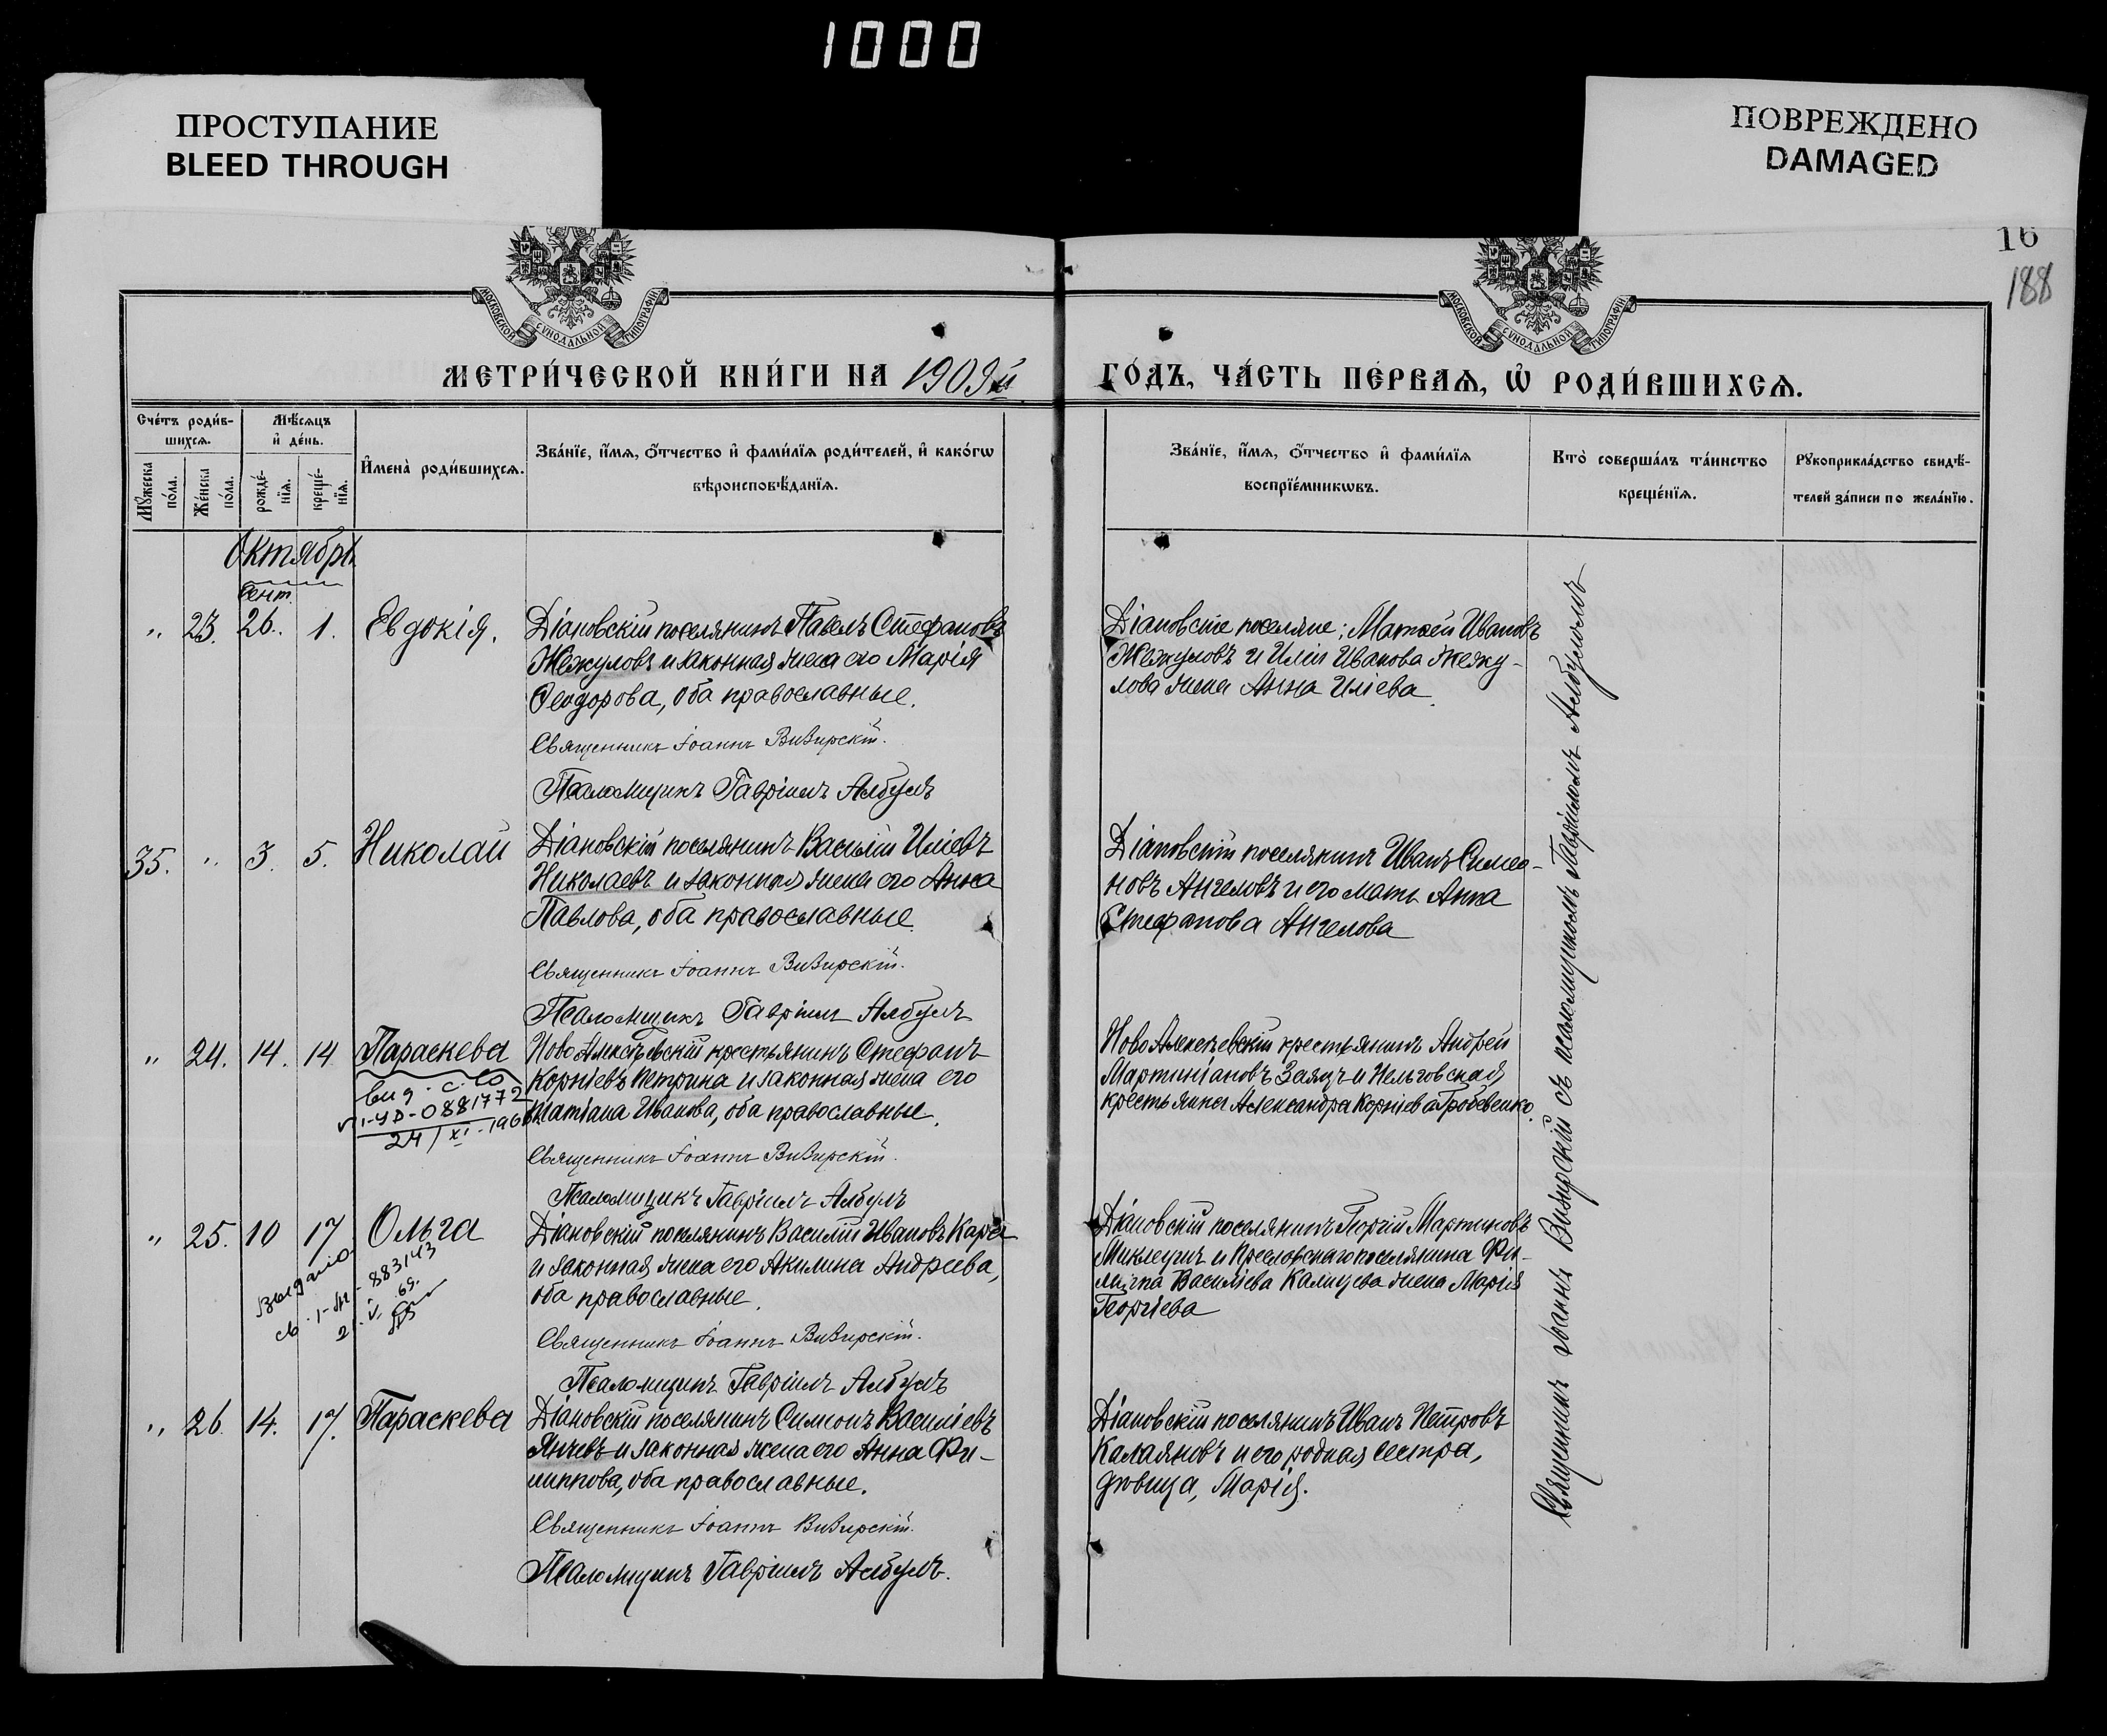 1000
ПРОСТУПАНИЕ
BLEED THROUGH
ПОВРЕЖДЕНО
DAMAGED
16
188
МОСКОВСКОЙ СѴНОДАЛЬНОЙ ТИПОГРАФІИ
МОСКОВСКОЙ СѴНОДАЛЬНОЙ ТИПОГРАФІИ
МЕТРИ́ЧЕСКОЙ КНИ́ГИ НА 1909й ГО́ДЪ, ЧА́СТЬ ПЕ́РВАѦ, Ѡ РОДИ́ВШИХСѦ.
Сче́тъ роди́в-
шихсѧ.
Мѣ́сѧцъ
и҆ де́нь.
Мꙋ́жеска
по́ла.
Же́нска
по́ла.
рожде́-
нїѧ.
креще́-
нїѧ.
И҆мена̀ роди́вшихсѧ.
Зва́нїе, и҆́мѧ, ѻ҆́тчество и҆ фами́лїѧ роди́телей, и҆ како́гѡ
вѣроисповѣ́данїѧ.
Зва́нїе, и҆́мѧ, ѻ҆́тчество и҆ фами́лїѧ
воспрїе́мникѡвъ.
Кто̀ соверша́лъ та́инство
креще́нїѧ.
Рꙋкоприкла́дство свидѣ́-
телей за́писи по жела́нїю.
Октябрь
Сент.
" 23. 26. 1. Евдокія.
Діановскій поселянинъ Павелъ Стефановъ
Жежуловъ и законная жена его Марія
Ѳеодорова, оба православные.
Священникъ Іоаннъ Визирскій.
Псаломщикъ Гавріилъ Албулъ
Діановскіе поселяне: Матѳей Ивановъ
Жежуловъ и Иліи Иванова Жежу-
лова жена Анна Иліева.
35. " 3. 5. Николай
Діановскій поселянинъ Василій Иліевъ
Николаевъ и законная жена его Анна
Павлова, оба православные.
Священникъ Іоаннъ Визирскій.
Псаломщикъ Гавріилъ Албулъ
Діановскій поселянинъ Иванъ Симео-
новъ Ангеловъ и его мать Анна
Стефанова Ангелова
" 24. 14. 14 Параскева
выд. с-во
VI-УР-0881772
24/XI-196
Ново Алексѣевскій крестьянинъ Стефанъ
Корніевъ Петрина и законная жена его
Татіана Иванова, оба православные.
Священникъ Іоаннъ Визирскій.
Псаломщикъ Гавріилъ Албулъ
Ново Алексѣевскій крестьянинъ Андрей
Мартиніановъ Заяцъ и Нельговская
крестьянка Александра Корніева Гробевенко.
" 25. 10 17 Ольга
Выдано
св. 1- 883143
21. V. 69.
Діановскій поселянинъ Василій Ивановъ Кара
и законная жена его Акилина Андреева,
оба православные.
Священникъ Іоаннъ Визирскій.
Псаломщикъ Гавріилъ Албулъ
Діановскій поселянинъ Георгій Мартиновъ
Миклеушъ и Преславскаго поселянина Фи-
липпа Василіева Калицева жена Марія
Георгіева
" 26. 14. 17. Параскева
Діановскій поселянинъ Симеонъ Василіевъ
Янчевъ и законная жена его Анна Фи-
липпова, оба православные.
Священникъ Іоаннъ Визирскій.
Псаломщикъ Гавріилъ Албулъ.
Діановскій поселянинъ Иванъ Петровъ
Калаяновъ и его родная сестра,
дѣвица, Марія.
Священникъ Іоаннъ Визирскій съ псаломщикомъ Гавріиломъ Албуломъ